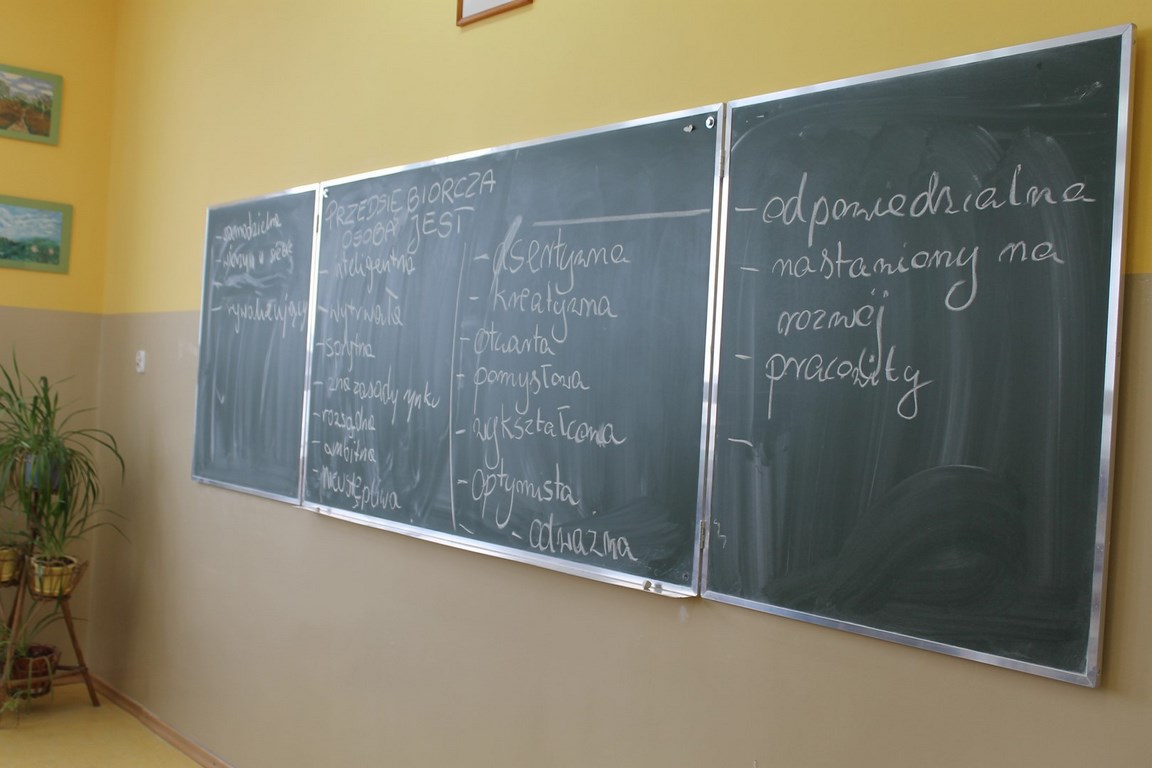 - samodzielna
- wierzy w siebie
- rywalizujący
PRZEDSIĘBIORCZA
OSOBA JEST
- inteligentna
- wytrwała
- sprytna
- zna zasady rynku
- rozsądna
- ambitna
- nieustępliwa
- asertywna
- kreatywna
- otwarta
- pomysłowa
- wykształcona
- optymista
- odważna
- odpowiedzialna
- nastawiony na
rozwój
- pracowity
-